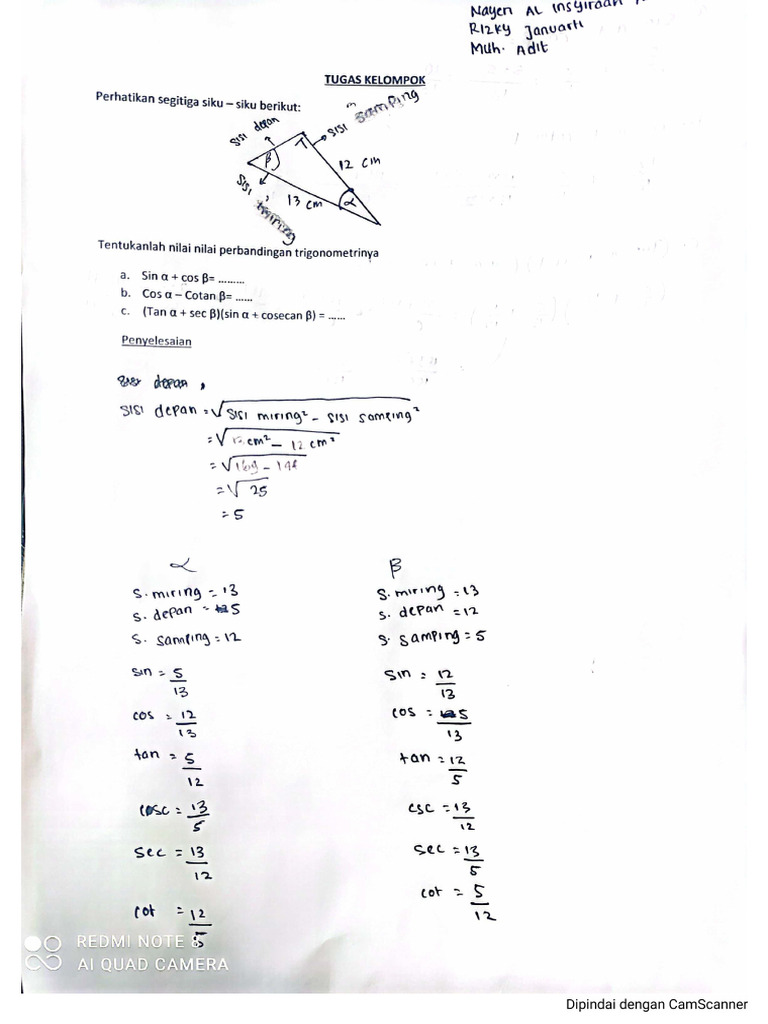 Nayen AL Insyiraah
Rizky Januarti
Muh. Adit
TUGAS KELOMPOK
Perhatikan segitiga siku – siku berikut:
sisi depan
sisi samping
β
12 cm
sisi miring
13 cm
α
Tentukanlah nilai nilai perbandingan trigonometrinya
a. Sin α + cos β= .........
b. Cos α – Cotan β= ......
c. (Tan α + sec β)(sin α + cosecan β) = ......
Penyelesaian
depan,
sisi depan = √sisi miring² – sisi samping²
= √13 cm² – 12 cm²
= √169 – 144
= √25
= 5
α
s. miring = 13
s. depan = 5
s. samping = 12
sin = 5/13
cos = 12/13
tan = 5/12
cosc = 13/5
sec = 13/12
cot = 12/5
β
s. miring = 13
s. depan = 12
s. samping = 5
sin = 12/13
cos = 5/13
tan = 12/5
csc = 13/12
sec = 13/5
cot = 5/12
REDMI NOTE 8
AI QUAD CAMERA
Dipindai dengan CamScanner